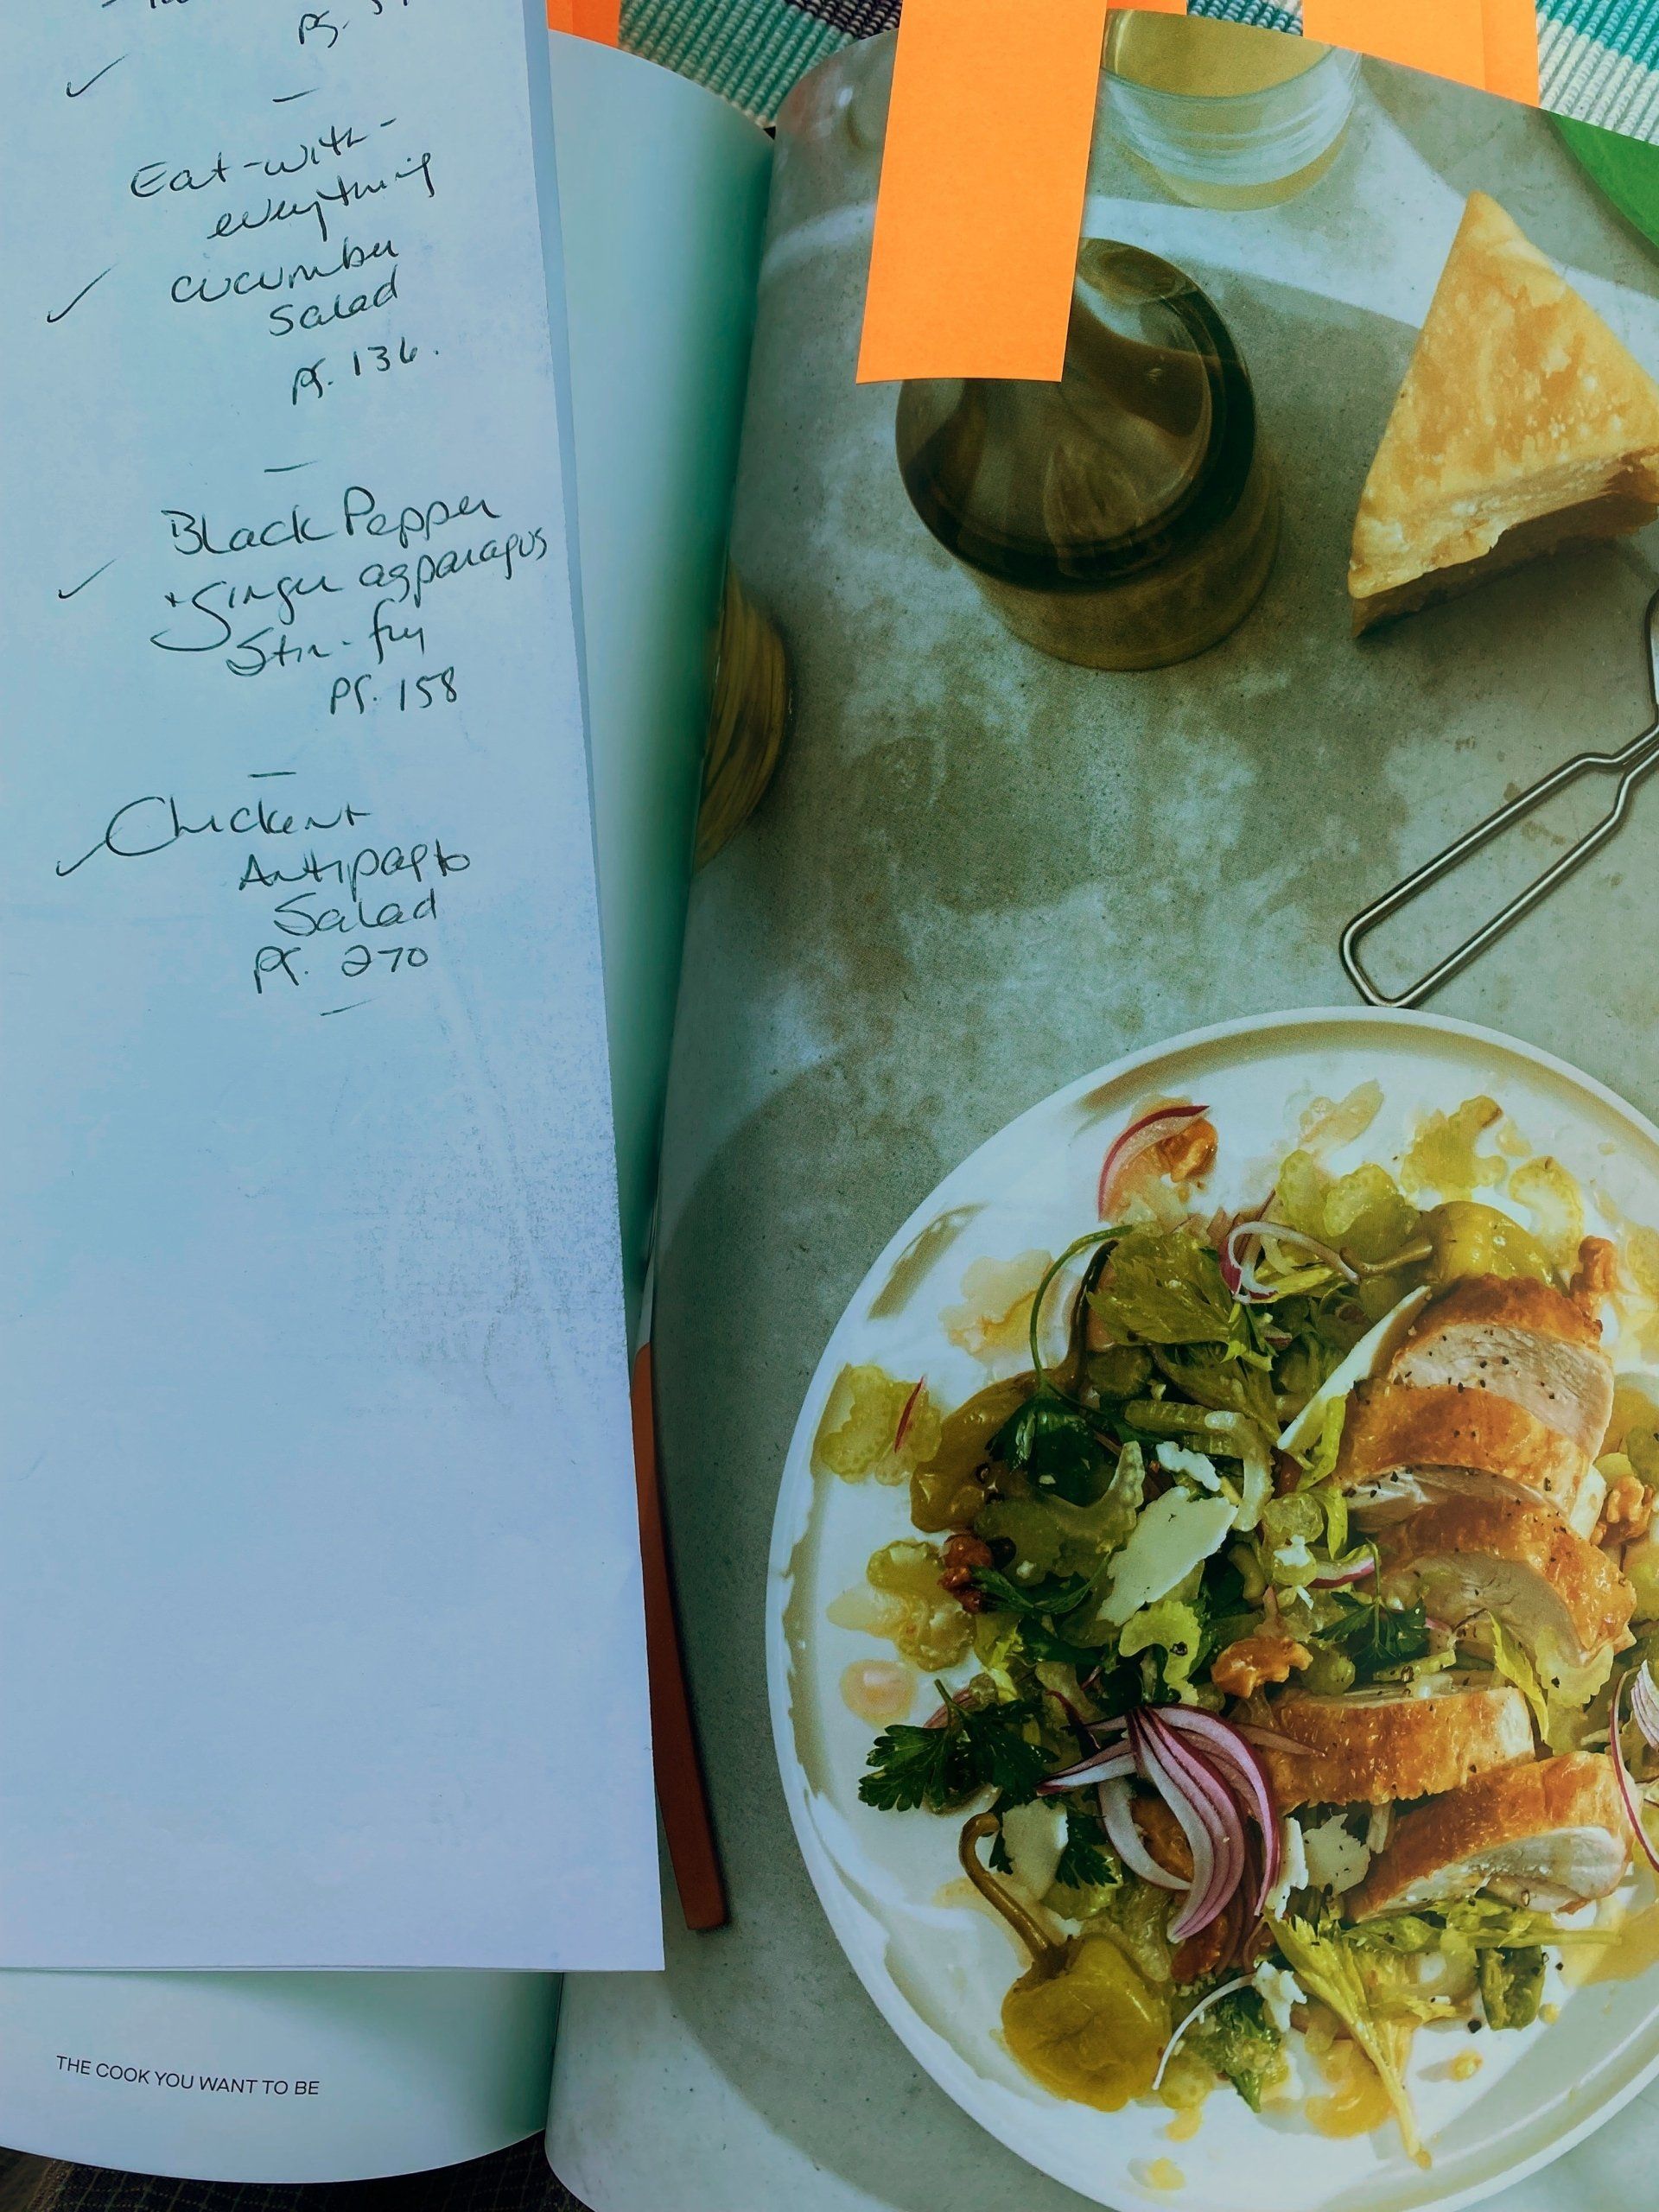 pg.
Eat-with-
everything
cucumber
Salad
pg. 136.
Black Pepper
+ Ginger asparagus
Stir-fry
pg. 158
Chicken +
Antipasto
Salad
pg. 270
THE COOK YOU WANT TO BE